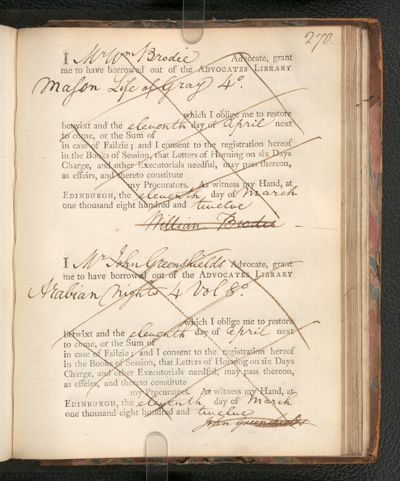 270
I Mr Wm Brodie Advocate, grant
me to have borrowed out of the ADVOCATES LIBRARY
Mason Life of Gray 4o.
which I oblige me to restore
betwixt and the eleventh day of April next
to come, or the Sum of
in case of Failzie; and I consent to the registration hereof
in the Books of Session, that Letters of Horning on six Days
Charge, and other Executorials needful, may pass thereon,
as effeirs, and thereto constitute
my Procurators. As witness my Hand, at
EDINBURGH, the eleventh day of March
one thousand eight hundred and twelve
William Brodie
I Mr John Greenshields Advocate, grant
me to have borrowed out of the ADVOCATES LIBRARY
Arabian Nights 4 Vol 8o.
which I oblige me to restore
betwixt and the eleventh day of April next
to come, or the Sum of
in case of Failzie; and I consent to the registration hereof
in the Books of Session, that Letters of Horning on six Days
Charge, and other Executorials needful, may pass thereon,
as effeirs, and thereto constitute
my Procurators. As witness my Hand, at
EDINBURGH, the eleventh day of March
one thousand eight hundred and twelve
John Greenshields